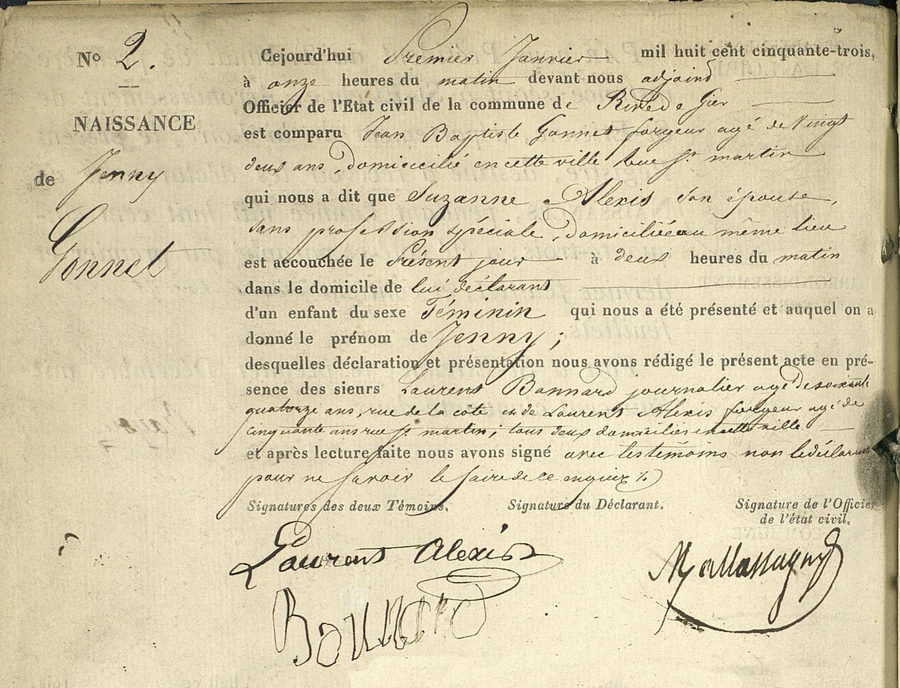 N° 2.
NAISSANCE
de Jenny
Gonnet
Cejourd'hui Premier Janvier mil huit cent cinquante-trois,
à onze heures du matin devant nous adjoint
Officier de l'Etat civil de la commune de Rive de Gier
est comparu Jean Baptiste Gonnet forgeur agé de Vingt
deux ans, domiccilié en cette ville rue St martin
qui nous a dit que Suzanne Alexis son épouse,
sans profession spéciale, domiciliée au même lieu
est accouchée le Présent jour à deux heures du matin
dans le domicile de lui déclarant
d'un enfant du sexe Féminin qui nous a été présenté et auquel on a
donné le prénom de Jenny ;
desquelles déclaration et présentation nous avons rédigé le présent acte en pré-
sence des sieurs Laurent Bonnard journalier agé de soixante
quatorze ans, rue de la côte et de Laurent Alexis forgeur agé de
cinquante ans rue St martin ; tous deux domiciliés en cette ville
et après lecture faite nous avons signé avec les témoins non le déclarant
pour ne savoir le faire de ce enquis
Signatures des deux Témoins.
Signature du Déclarant.
Signature de l'Officier
de l'état civil.
Laurent Alexis
Bonnard